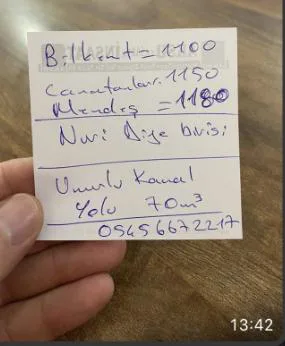 Bilkent = 1100
Canatanlar. 1150
Mendeş = 1180
Nuri Diye birisi
Umurlu Kanal
Yolu 70 m³
05456672217
13:42